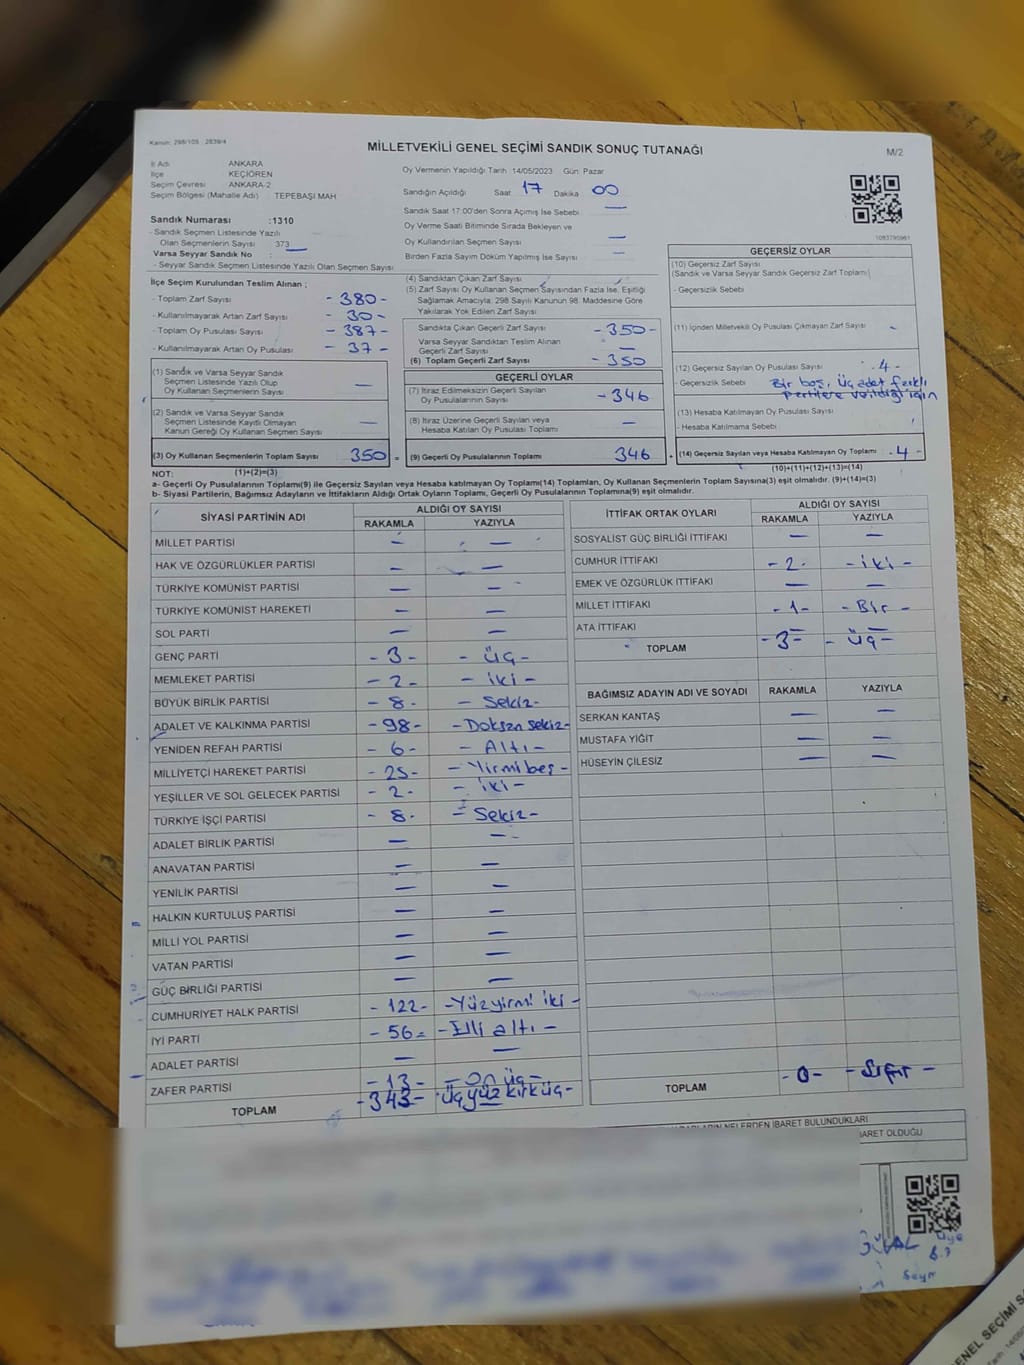 Kanun: 298/105 - 2839/4
MİLLETVEKİLİ GENEL SEÇİMİ SANDIK SONUÇ TUTANAĞI
M/2
İl Adı ANKARA
İlçe KEÇİÖREN
Seçim Çevresi ANKARA-2
Seçim Bölgesi (Mahalle Adı) TEPEBAŞI MAH
Sandık Numarası :1310
- Sandık Seçmen Listesinde Yazılı
Olan Seçmenlerin Sayısı 373
Varsa Seyyar Sandık No :
- Seyyar Sandık Seçmen Listesinde Yazılı Olan Seçmen Sayısı
Oy Vermenin Yapıldığı Tarih 14/05/2023 Gün: Pazar
Sandığın Açıldığı Saat 17 Dakika 00
Sandık Saat 17:00'den Sonra Açılmış İse Sebebi —
Oy Verme Saati Bitiminde Sırada Bekleyen ve
Oy Kullandırılan Seçmen Sayısı —
Birden Fazla Sayım Döküm Yapılmış İse Sayısı —
1083795961
İlçe Seçim Kurulundan Teslim Alınan ;
- Toplam Zarf Sayısı - 380 -
- Kullanılmayarak Artan Zarf Sayısı - 30 -
- Toplam Oy Pusulası Sayısı - 387 -
- Kullanılmayarak Artan Oy Pusulası - 37 -
(1) Sandık ve Varsa Seyyar Sandık
Seçmen Listesinde Yazılı Olup
Oy Kullanan Seçmenlerin Sayısı —
(2) Sandık ve Varsa Seyyar Sandık
Seçmen Listesinde Kayıtlı Olmayan
Kanun Gereği Oy Kullanan Seçmen Sayısı —
(3) Oy Kullanan Seçmenlerin Toplam Sayısı 350 =
(4) Sandıktan Çıkan Zarf Sayısı
(5) Zarf Sayısı Oy Kullanan Seçmen Sayısından Fazla İse, Eşitliği
Sağlamak Amacıyla, 298 Sayılı Kanunun 98. Maddesine Göre
Yakılarak Yok Edilen Zarf Sayısı
Sandıkta Çıkan Geçerli Zarf Sayısı - 350 -
Varsa Seyyar Sandıktan Teslim Alınan
Geçerli Zarf Sayısı —
(6) Toplam Geçerli Zarf Sayısı - 350
GEÇERLİ OYLAR
(7) İtiraz Edilmeksizin Geçerli Sayılan
Oy Pusulalarının Sayısı - 346
(8) İtiraz Üzerine Geçerli Sayılan veya
Hesaba Katılan Oy Pusulası Toplamı —
(9) Geçerli Oy Pusulalarının Toplamı 346 +
GEÇERSİZ OYLAR
(10) Geçersiz Zarf Sayısı
(Sandık ve Varsa Seyyar Sandık Geçersiz Zarf Toplamı)
- Geçersizlik Sebebi
(11) İçinden Milletvekili Oy Pusulası Çıkmayan Zarf Sayısı -
(12) Geçersiz Sayılan Oy Pusulası Sayısı - 4 -
- Geçersizlik Sebebi Bir boş, üç adet farklı
partilere verildiği için
(13) Hesaba Katılmayan Oy Pusulası Sayısı
- Hesaba Katılmama Sebebi
(14) Geçersiz Sayılan veya Hesaba Katılmayan Oy Toplamı - 4 -
NOT: (1)+(2)=(3) (10)+(11)+(12)+(13)=(14)
a- Geçerli Oy Pusulalarının Toplamı(9) ile Geçersiz Sayılan veya Hesaba katılmayan Oy Toplamı(14) Toplamları, Oy Kullanan Seçmenlerin Toplam Sayısına(3) eşit olmalıdır. (9)+(14)=(3)
b- Siyasi Partilerin, Bağımsız Adayların ve İttifakların Aldığı Ortak Oyların Toplamı, Geçerli Oy Pusulalarının Toplamına(9) eşit olmalıdır.
SİYASİ PARTİNİN ADI ALDIĞI OY SAYISI
RAKAMLA YAZIYLA
MİLLET PARTİSİ — —
HAK VE ÖZGÜRLÜKLER PARTİSİ — —
TÜRKİYE KOMÜNİST PARTİSİ — —
TÜRKİYE KOMÜNİST HAREKETİ — —
SOL PARTİ — —
GENÇ PARTİ - 3 - - Üç -
MEMLEKET PARTİSİ - 2 - - iki -
BÜYÜK BİRLİK PARTİSİ - 8 - - Sekiz -
ADALET VE KALKINMA PARTİSİ - 98 - - Doksan sekiz -
YENİDEN REFAH PARTİSİ - 6 - - Altı -
MİLLİYETÇİ HAREKET PARTİSİ - 25 - - Yirmi beş -
YEŞİLLER VE SOL GELECEK PARTİSİ - 2 - - iki -
TÜRKİYE İŞÇİ PARTİSİ - 8 - - Sekiz -
ADALET BİRLİK PARTİSİ — —
ANAVATAN PARTİSİ — —
YENİLİK PARTİSİ — —
HALKIN KURTULUŞ PARTİSİ — —
MİLLİ YOL PARTİSİ — —
VATAN PARTİSİ — —
GÜÇ BİRLİĞİ PARTİSİ — —
CUMHURİYET HALK PARTİSİ - 122 - - Yüzyirmi iki -
İYİ PARTİ - 56 - - Elli altı -
ADALET PARTİSİ — —
ZAFER PARTİSİ - 13 - - On üç -
TOPLAM - 343 - - Üçyüz kırküç -
İTTİFAK ORTAK OYLARI ALDIĞI OY SAYISI
RAKAMLA YAZIYLA
SOSYALİST GÜÇ BİRLİĞİ İTTİFAKI — —
CUMHUR İTTİFAKI - 2 - - iki -
EMEK VE ÖZGÜRLÜK İTTİFAKI — —
MİLLET İTTİFAKI - 1 - - Bir -
ATA İTTİFAKI — —
TOPLAM - 3 - - Üç -
BAĞIMSIZ ADAYIN ADI VE SOYADI RAKAMLA YAZIYLA
SERKAN KANTAŞ — —
MUSTAFA YİĞİT — —
HÜSEYİN ÇİLESİZ — —
TOPLAM - 0 - - Sıfır -
NELERDEN İBARET BULUNDUKLARI
İBARET OLDUĞU
Üye
GENEL SEÇİMİ